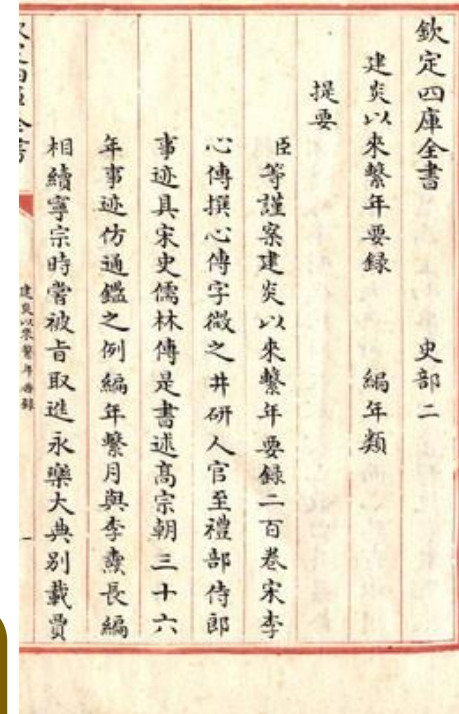 欽定四庫全書 史部二
建炎以來繫年要錄 編年類
提要
臣等謹案建炎以來繫年要錄二百卷宋李
心傳撰心傳字微之井研人官至禮部侍郎
事迹具宋史儒林傳是書述髙宗朝三十六
年事迹仿通鑑之例編年繫月與李燾長編
相續寧宗時嘗被旨取進永樂大典别載賈
欽定四庫全書
建炎以來繫年要錄
一